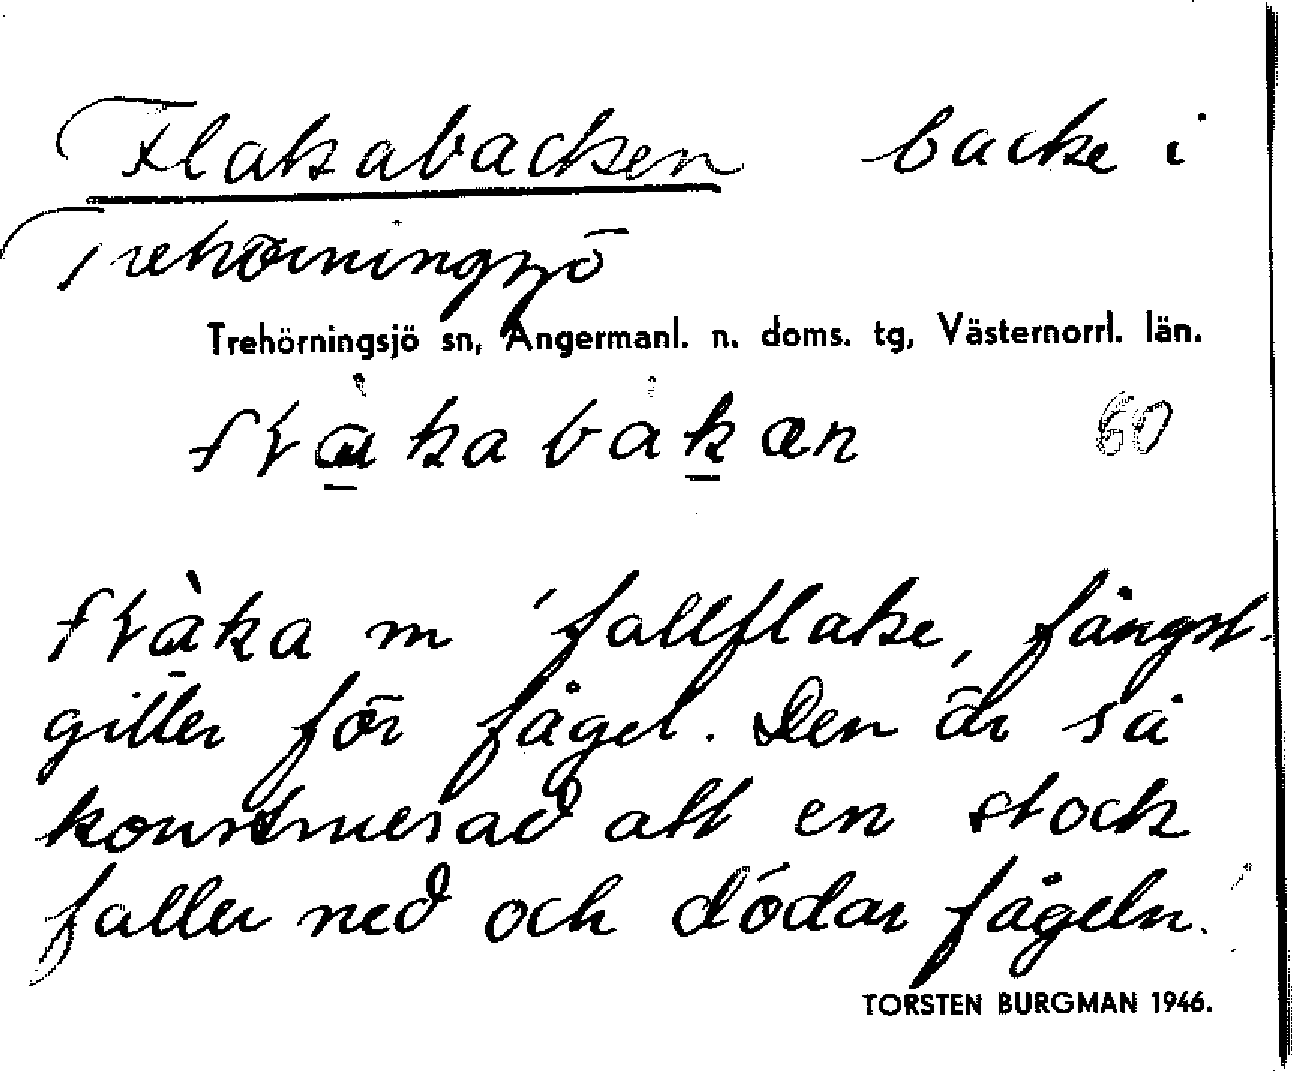 Flakabacken backe i
Trehörningsjö
Trehörningsjö sn, Ångermanl. n. doms. tg, Västernorrl. län.
60
m 'fallflake, fångst-
giller för fågel. Den är så
konstruerad att en stock
faller ned och dödar fågeln.'
TORSTEN BURGMAN 1946.